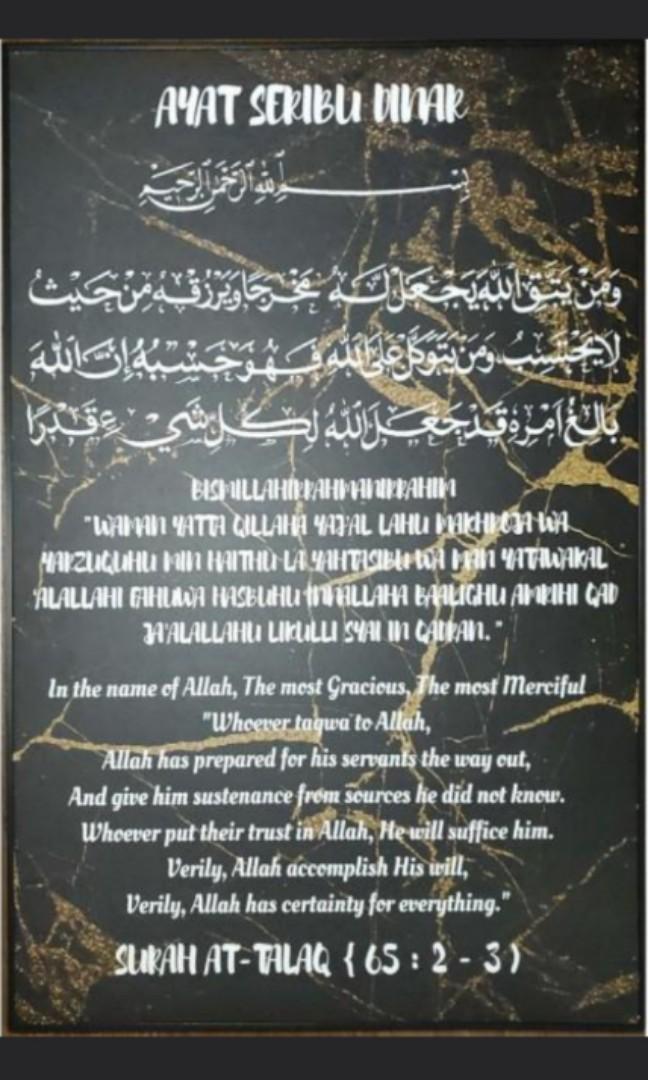 AYAT SERIBU DINAR
بِسْــــمِ اللهِ الرَّحْمٰنِ الرَّحِيْمِ
وَمَنْ يَتَّقِ اللهَ يَجْعَلْ لَهُ مَخْرَجًا وَيَرْزُقْهُ مِنْ حَيْثُ
لَا يَحْتَسِبُ وَمَنْ يَتَوَكَّلْ عَلَى اللهِ فَهُوَ حَسْبُهُ إِنَّ اللهَ
بَالِغُ اَمْرِهِ قَدْ جَعَلَ اللهُ لِكُلِّ شَيْءٍ قَدْرًا
BISMILLAHIRRAHMANIRRAHIM
"WAMAN YATTA QILLAHA YAJ'AL LAHU MAKHROJA WA
YARZUQUHU MIN HAITHU LA YAHTASIBU WA MAN YATAWAKAL
'ALALLAHI FAHUWA HASBUHU INNALLAHA BAALIGHU AMRIHI QAD
JA'ALALLAHU LIKULLI SYAI IN QADRAN."
In the name of Allah, The most Gracious, The most Merciful
"Whoever taqwa to Allah,
Allah has prepared for his servants the way out,
And give him sustenance from sources he did not know.
Whoever put their trust in Allah, He will suffice him.
Verily, Allah accomplish His will,
Verily, Allah has certainty for everything."
SURAH AT-TALAQ { 65 : 2 - 3 )